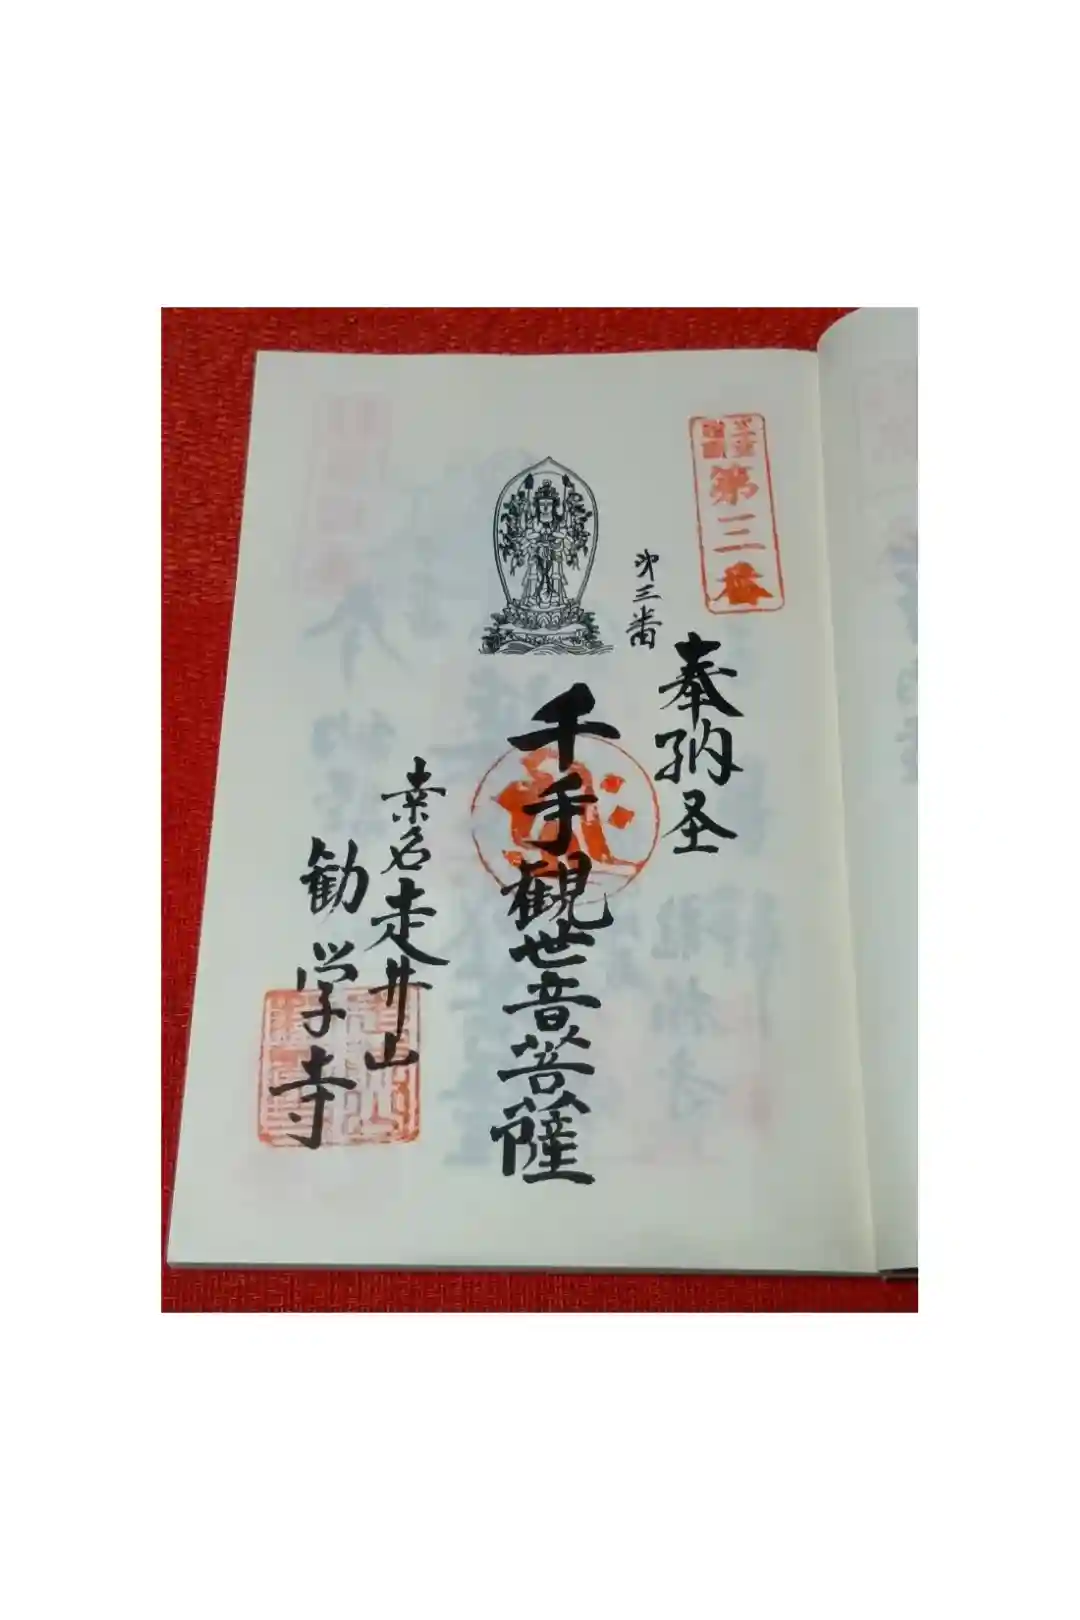 第三番
奉納圣
第三番
千手観世音菩薩
桒名走井山
勧学寺